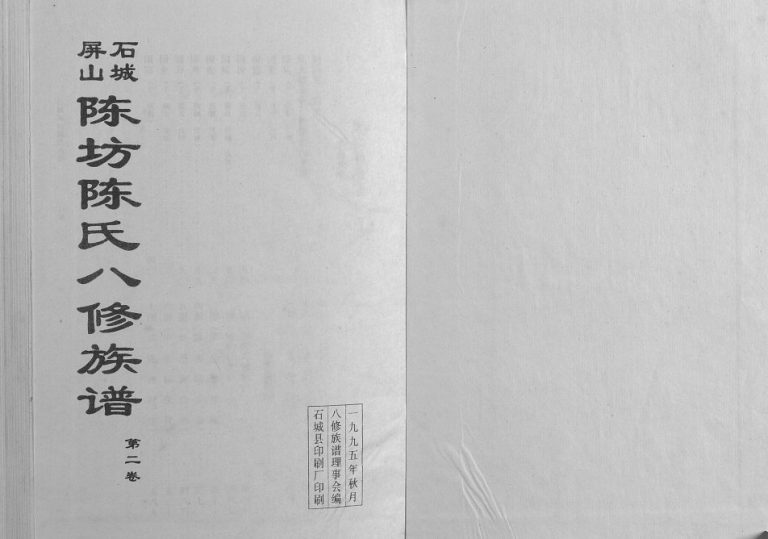 石城
屏山
陈坊陈氏八修族谱
第二卷
一九九五年秋月
八修族谱理事会编
石城县印刷厂印刷